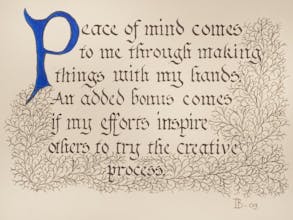 Peace of mind comes
to me through making
things with my hands.
An added bonus comes
if my efforts inspire
others to try the creative
process.